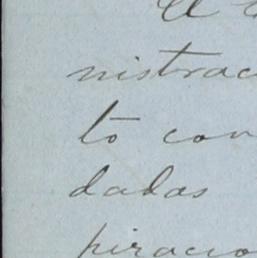 El
nistrac
to con
dadas
piracio